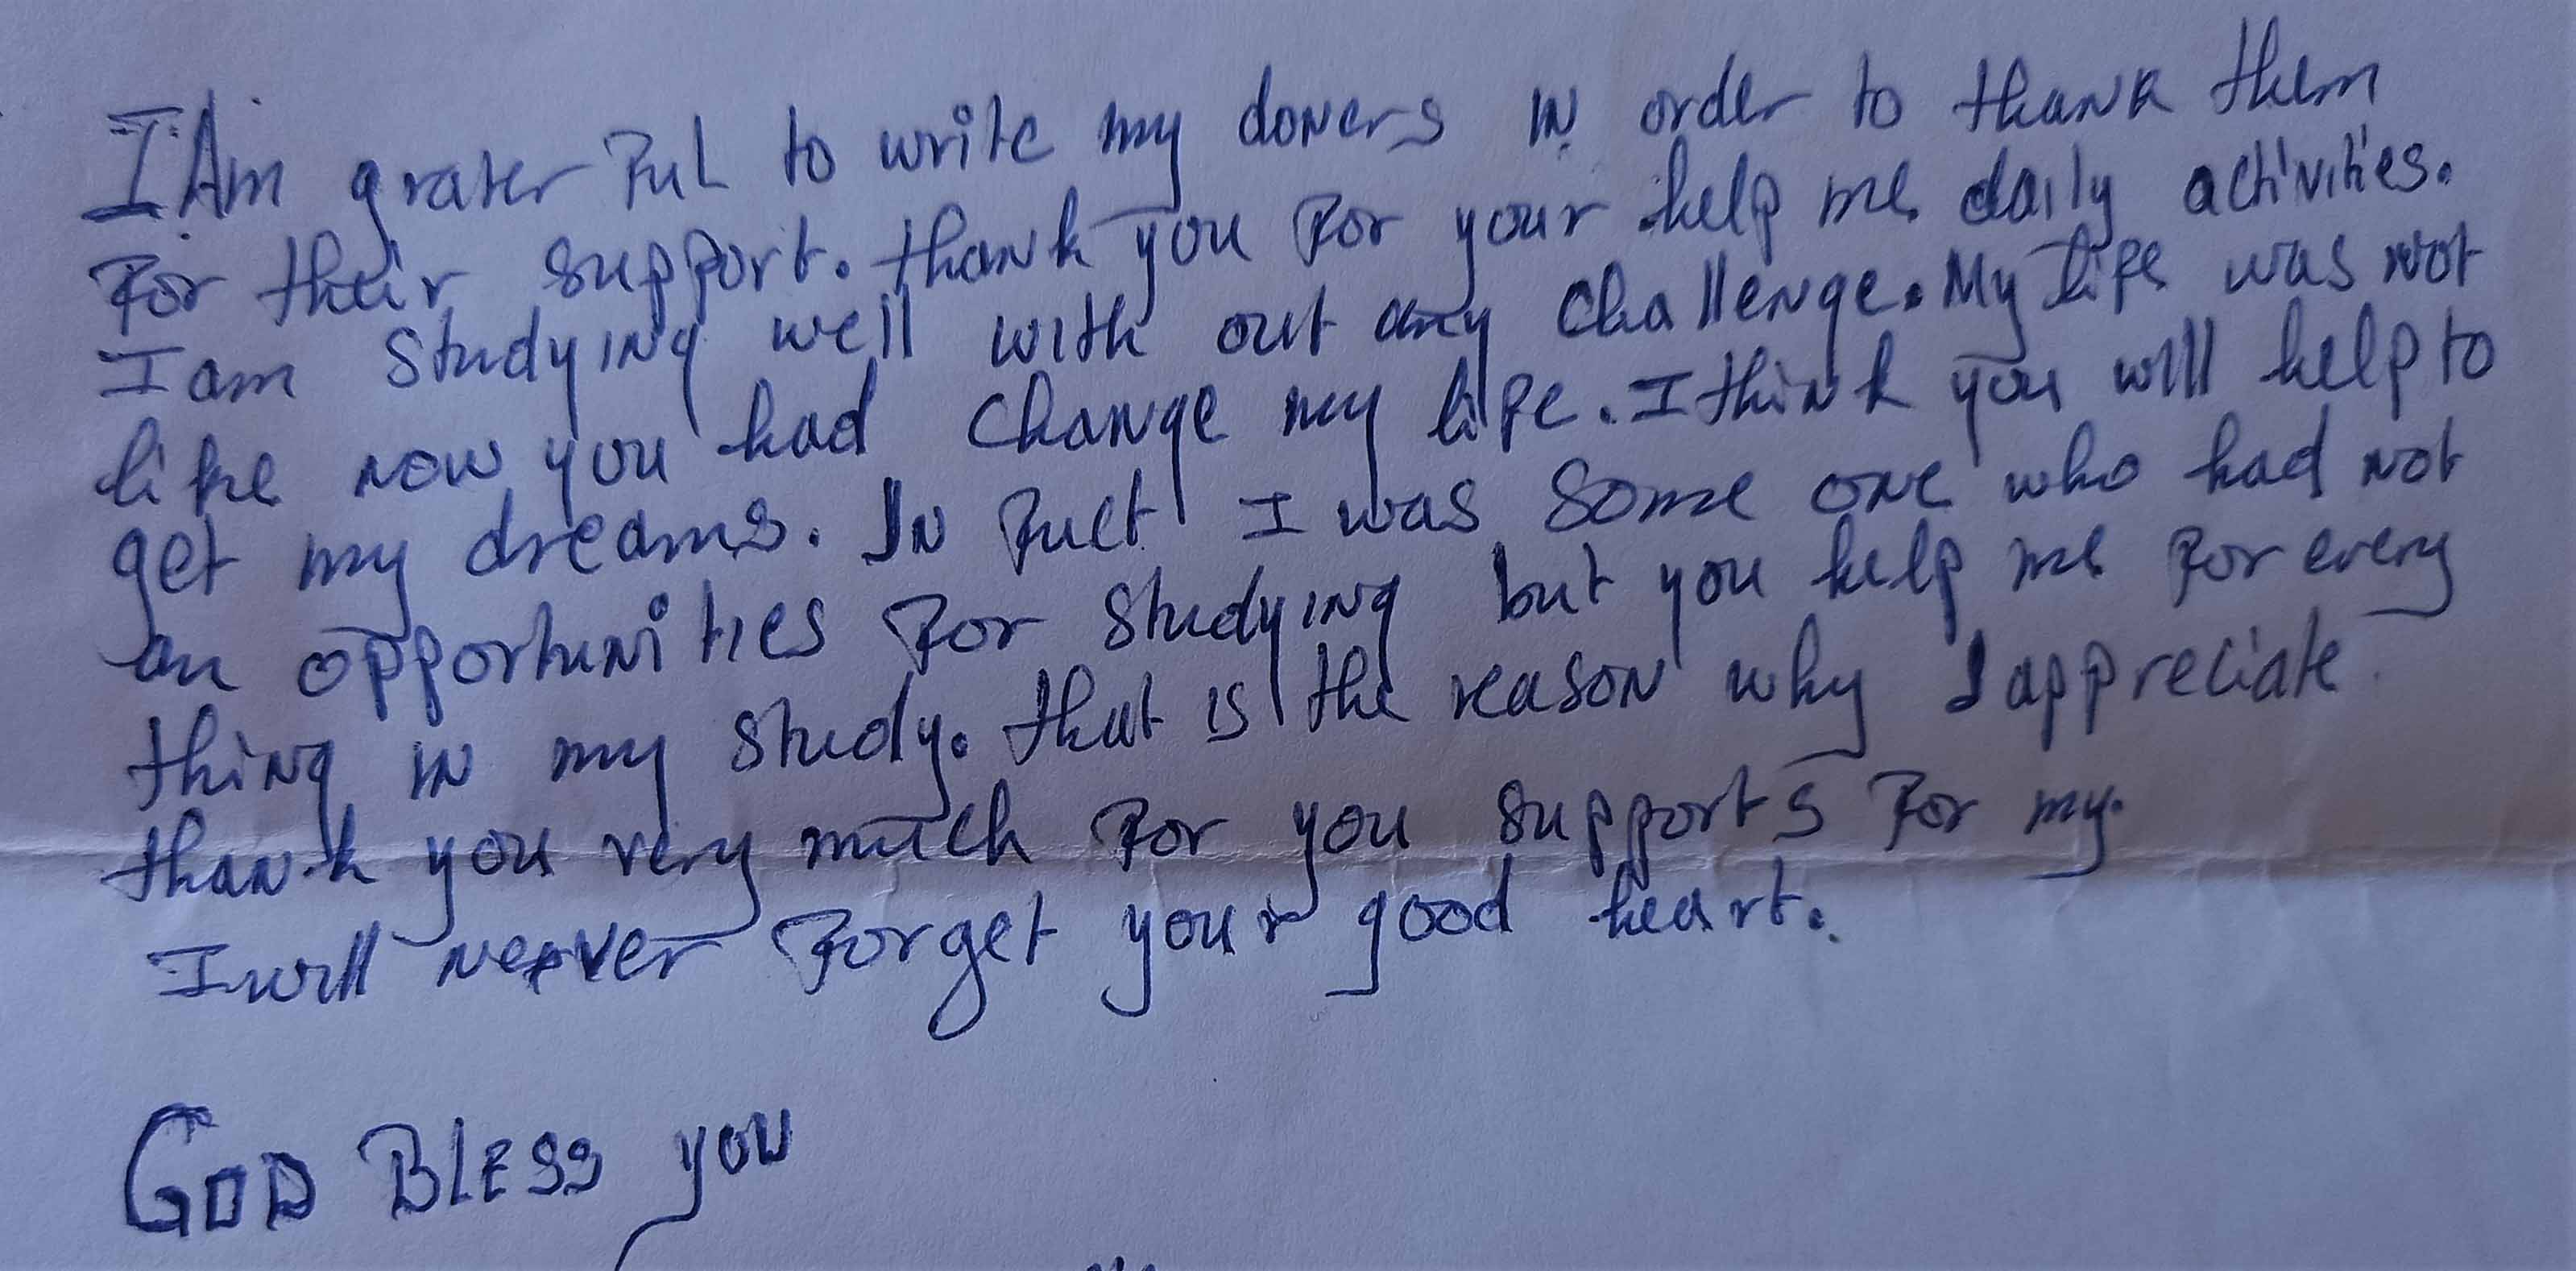 I Am graterful to write my doners in order to thank them
for their support. thank you for your help me daily activities.
I am studying well with out any challenge. My life was not
like now you had change my life. I think you will help to
get my dreams. In fuct I was some one who had not
an opportunities for studying but you help me for every
thing in my study. that is the reason why I appreciate
thank you very much for you supports for my.
I will never forget your good heart.
GOD BLESS you